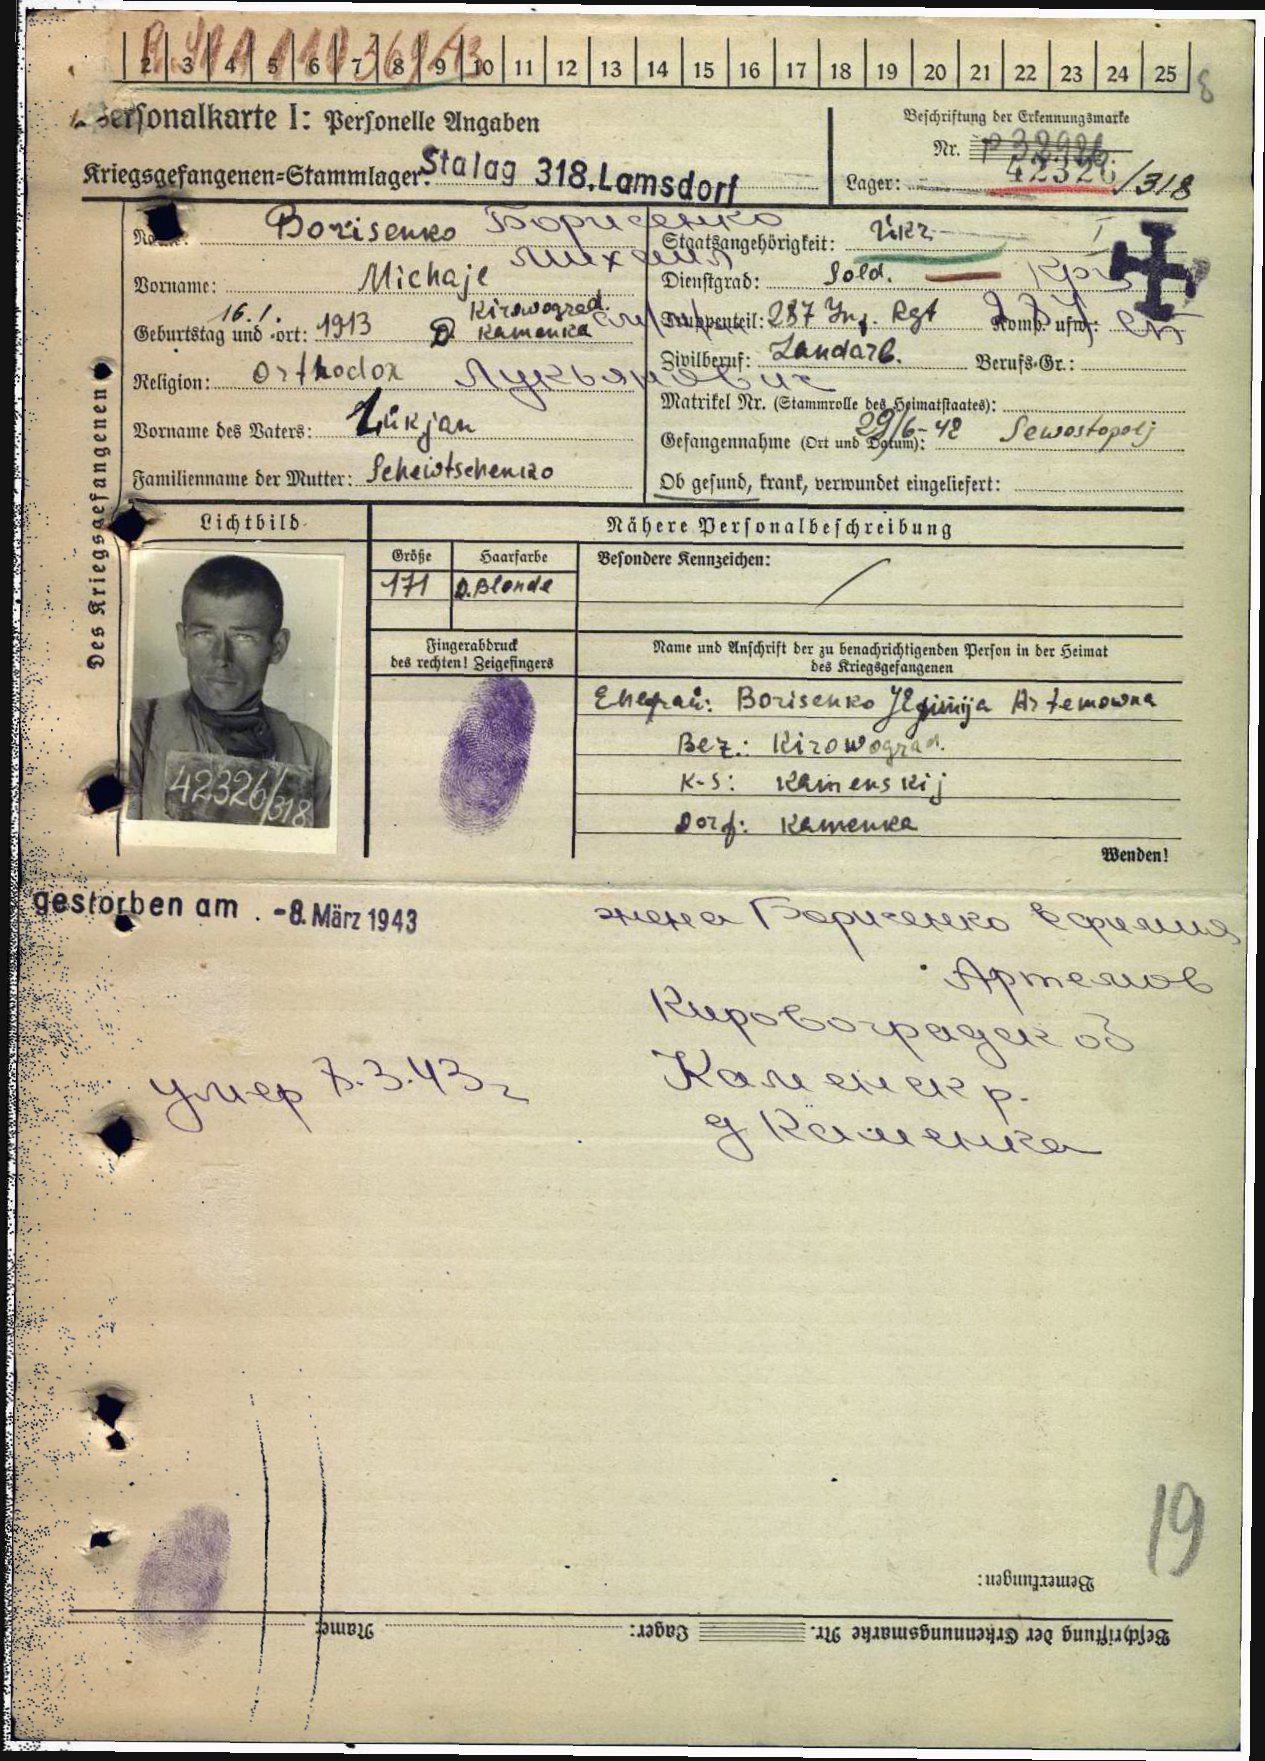 2 3 4 5 6 7 8 9 10 11 12 13 14 15 16 17 18 19 20 21 22 23 24 25
Personalkarte I: Personelle Angaben
Beschriftung der Erkennungsmarke
Nr.
Kriegsgefangenen-Stammlager: Stalag 318. Lamsdorf
42326/318
Lager:
Des Kriegsgefangenen
Name: Borisenko Борисенко
Staatsangehörigkeit: Ukr
Михаил
Vorname: Michaje
Dienstgrad: Sold.
16.1. Kirowograd.
Geburtstag und -ort: 1913 D. Kamenka
Truppenteil: 287 Inf. Rgt Komp. usw.:
Zivilberuf: Landarb. Berufs-Gr.:
Religion: Orthodox Лукьянович
Matrikel Nr. (Stammrolle des Heimatstaates):
Vorname des Vaters: Lukjan
Gefangennahme (Ort und Datum): 29/6-42 Sewostopolj
Familienname der Mutter: Schewtschenko
Ob gesund, krank, verwundet eingeliefert:
Lichtbild
Nähere Personalbeschreibung
Größe Haarfarbe Besondere Kennzeichen:
171 D.Blonde
Fingerabdruck
des rechten! Zeigefingers
Name und Anschrift der zu benachrichtigenden Person in der Heimat
des Kriegsgefangenen
Ehefrau: Borisenko Artemowna
Bez.: Kirowograd.
K-S: Kamenskij
Dorf: Kamenka
42326/318
Wenden!
gestorben am -8. März 1943
жена Борисенко Ефимия
Артемов
Кировоградск об
умер 8.3.43 г
Каменск р.
д Каменка
19
Bemerkungen:
Beschriftung der Erkennungsmarke Nr. Lager: Name: